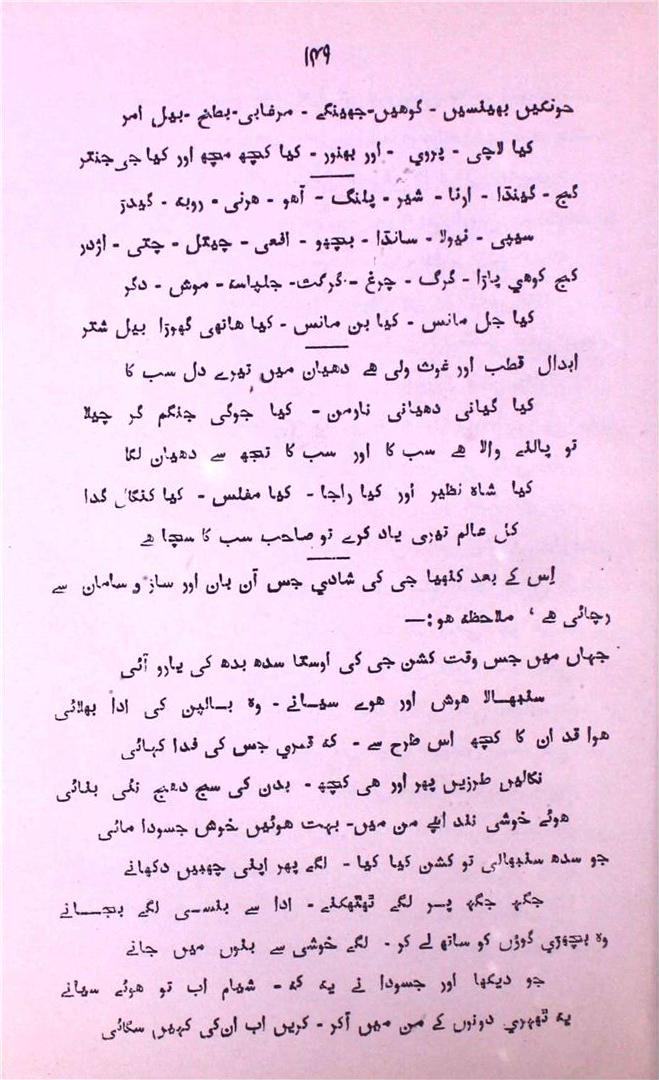 ۱۴۹
جونکیں بھینسیں - گوھیں - جھینگے - مرغابی - بطخ - بیل امر
کیا لاچی - پروی - اور بھنور - کیا کچھ مچھ اور کیا جی جنتر
گج - گینڈا - ارنا - شیر - پلنگ - آھو - ھرنی - روبہ - گیدڑ
سیہی - نیولا - سانڈا - بچھو - افعی - چیتل - چتی - اژدر
کبج کوھی پاڑا - گرگ - چرغ - گرگٹ - چلپاسہ - موش - دگر
کیا جل مانس - کیا بن مانس - کیا ھاتھی گھوڑا بیل شتر
ابدال قطب اور غوث ولی ھے دھیان میں تیرے دل سب کا
کیا گیانی دھیانی نارمن - کیا جوگی جنگم گر چیلا
تو پالنے والا ھے سب کا اور سب کا تجھ سے دھیان لگا
کیا شاہ نظیر اور کیا راجا - کیا مفلس - کیا کنگال گدا
کل عالم تیری یاد کرے تو صاحب سب کا سچا ھے
اِس کے بعد کنھیا جی کی شادی جس آن بان اور ساز و سامان سے
رچائی ھے ‘ ملاحظہ ھو :—
جہاں میں جس وقت کشن جی کی اوستھا سدھ بدھ کی یارو آئی
سنبھالا ھوش اور ھوے سیانے - وہ بالپن کی ادا بھلائی
ھوا قد ان کا کچھ اس طرح سے - کہ قمری جس کی فدا کہائی
نکالیں طرزیں پھر اور ھی کچھ - بدن کی سج دھج نئی بنائی
ھوئے خوشی نند اپنے من میں - بہت ھوئیں خوش جسودا مائی
جو سدھ سنبھالی تو کشن کیا کیا - لگے پھر اپنی چھبیں دکھانے
جگہ جگہ پر لگے ٹھٹھکنے - ادا سے بنسی لگے بجانے
وہ بچھڑی گوؤں کو ساتھ لے کر - لگے خوشی سے بنوں میں جانے
جو دیکھا اور جسودا نے یہ کہ - شیام اب تو ھوئے سیانے
یہ ٹھہری دونوں کے من میں آکر - کریں اب ان کی کہیں سگائی